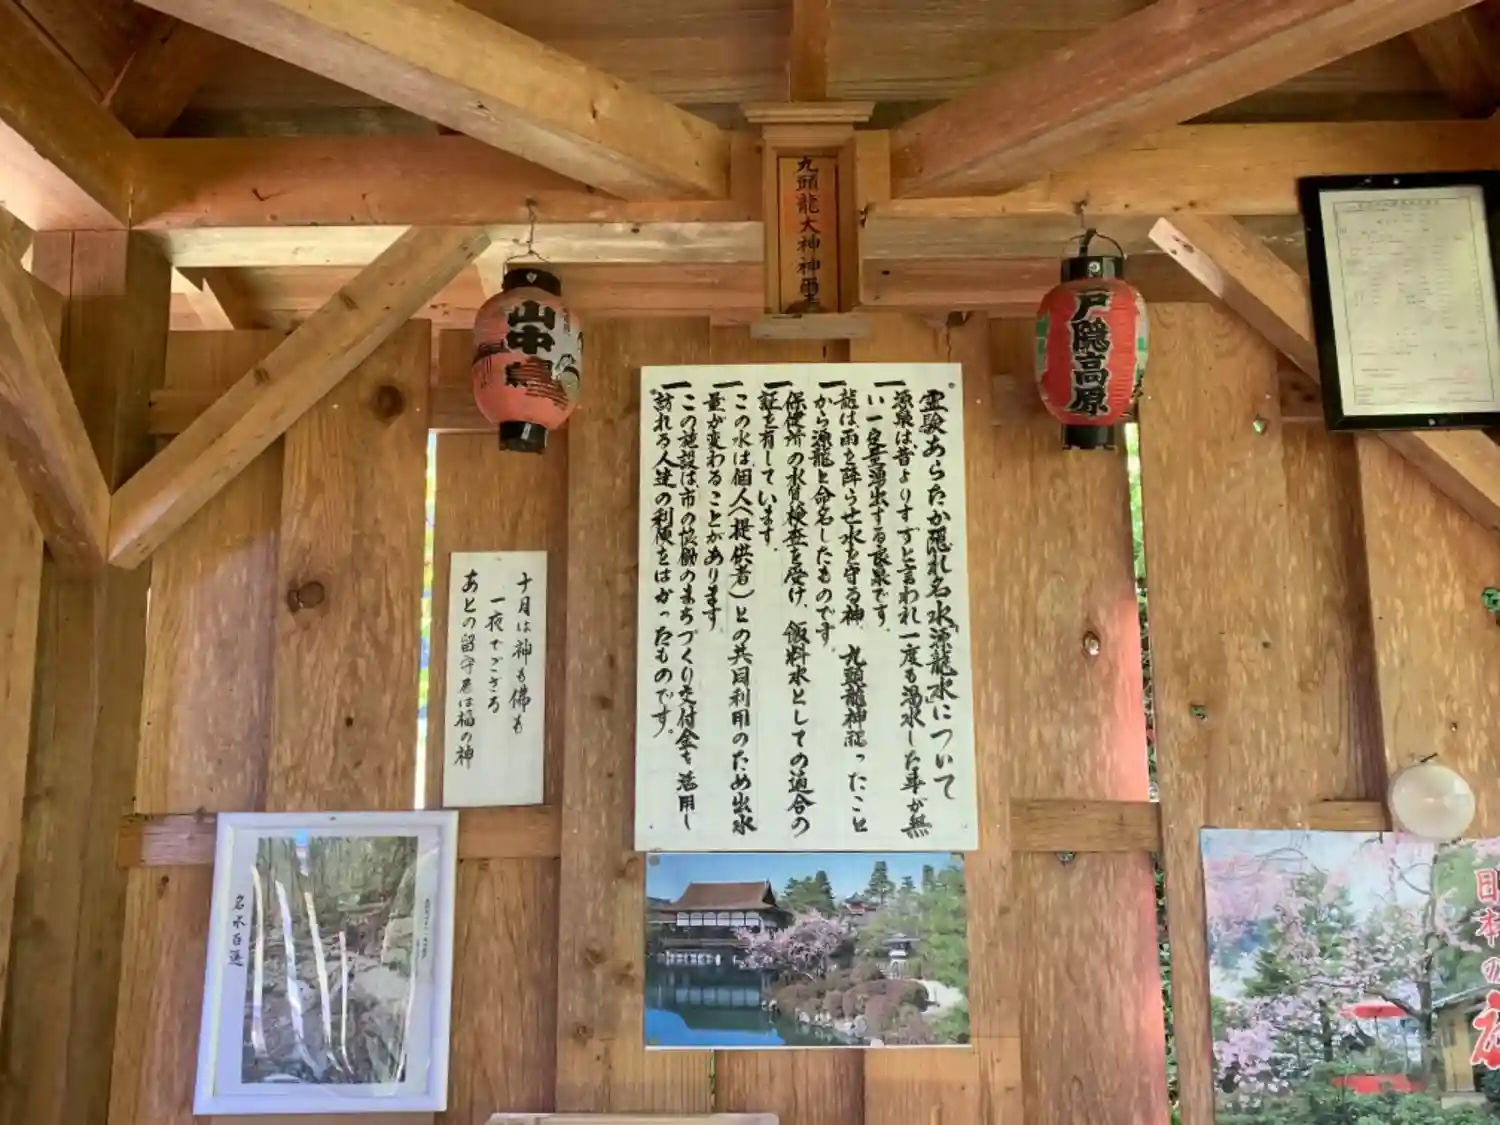 九頭龍大神神璽
山中
戸隠高原
霊験あらたか隠れ名水「源龍水」について
一 源泉は、昔よりすずと言われ一度も渇水した事が無
い一定量湧出する良泉です。
一 龍は、雨を降らせ水を守る神、九頭龍神
から源龍と命名したものです。
一 保健所の水質検査を受け、飯料水としての適合の
証を有しています。
一 この水は個人(提供者)との共同利用のため出水
量が変わることがあります。
一 この施設は、市の協働のまちづくり交付金を活用し
訪れる人達の利便をはかったものです。
十月は神も佛も
一夜でござる
あとの留守居は福の神
名水百選
日本の